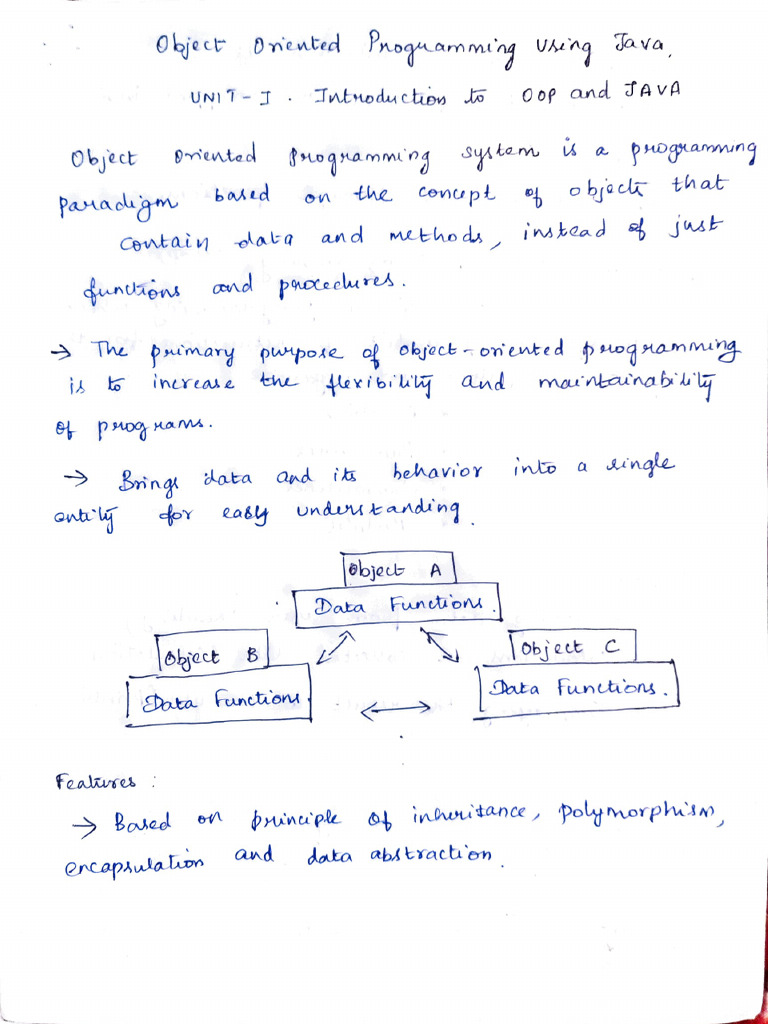 Object Oriented Programming using Java.
UNIT-I. Introduction to OOP and JAVA
Object Oriented programming system is a programming
paradigm based on the concept of objects that
contain data and methods, instead of just
functions and procedures.
→ The primary purpose of object-oriented programming
is to increase the flexibility and maintainability
of programs.
→ Brings data and its behavior into a single
entity for easy understanding.
Object A
Data Functions.
Object B
Data Functions.
Object C
Data Functions.
Features :
→ Based on principle of inheritance, polymorphism,
encapsulation and data abstraction.